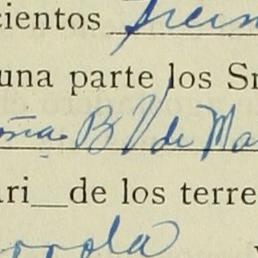 cientos Trein
una parte los Sr
oña B V de Ma
ari__de los terre
rrola